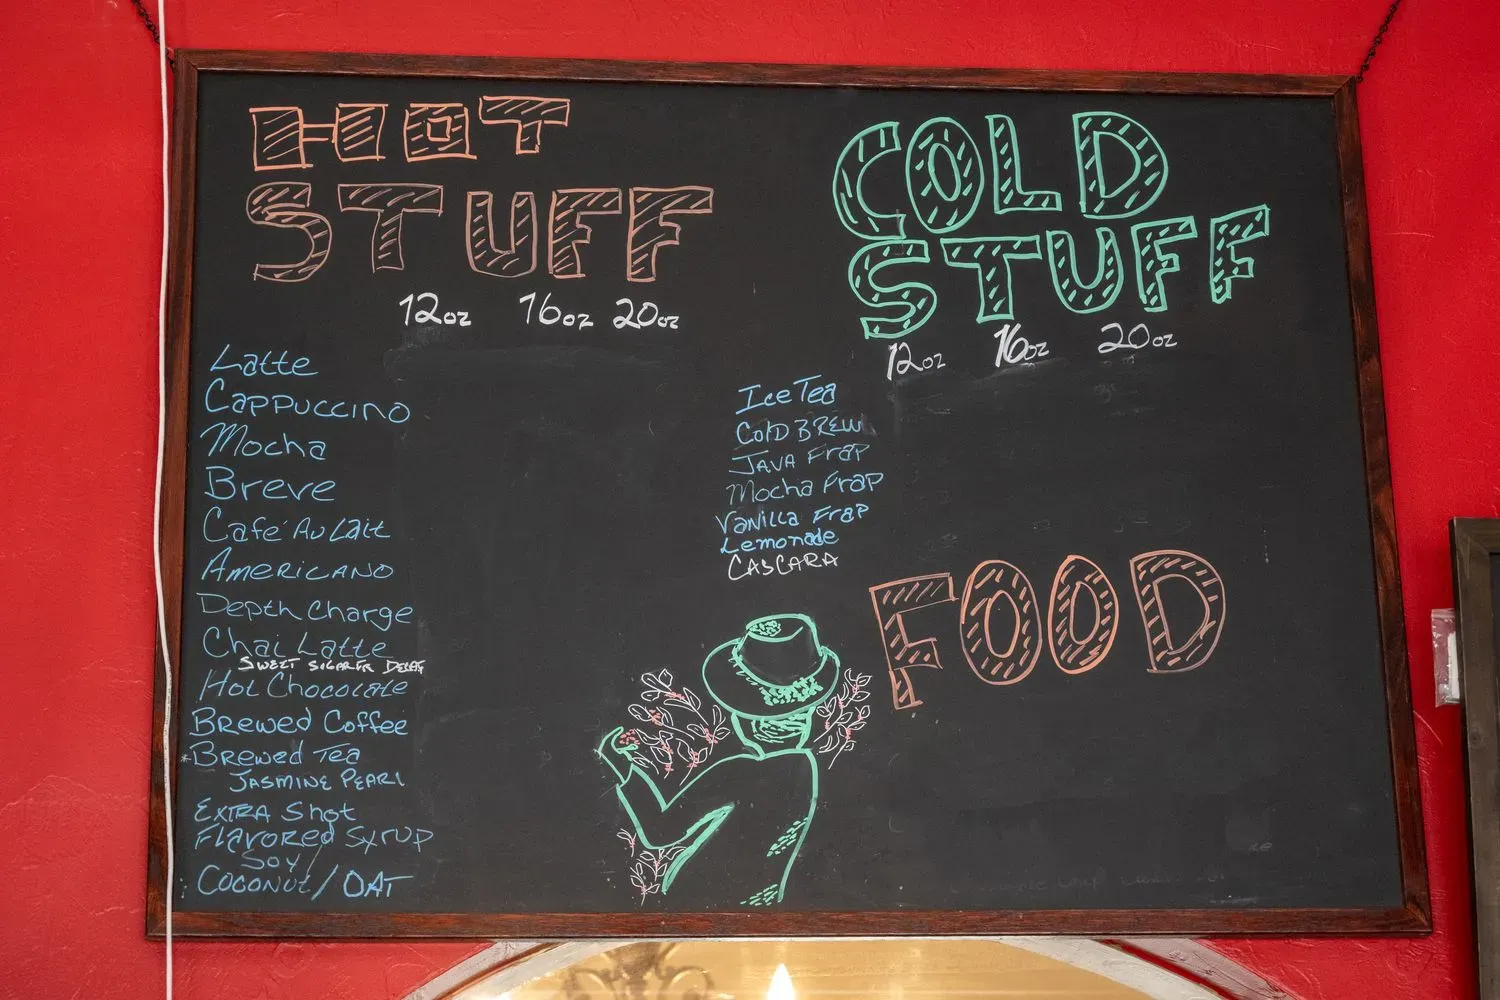 HOT
STUFF
12oz 16oz 20oz
Latte
CAPPUCCINO
Mocha
Breve
Café Au Lait
AMERICANO
Depth Charge
Chai Latte
SWEET
Hot Chocolate
BREWED Coffee
*BREWED TEA
JASMINE PEARL
EXTRA Shot
FlavoRed Syrup
SOY/
COCONUT/OAT
COLD
STUFF
12oz 16oz 20oz
Ice Tea
ColD BREW
JAVA Frap
Mocha Frap
Vanilla Frap
Lemonade
CASCARA
FOOD